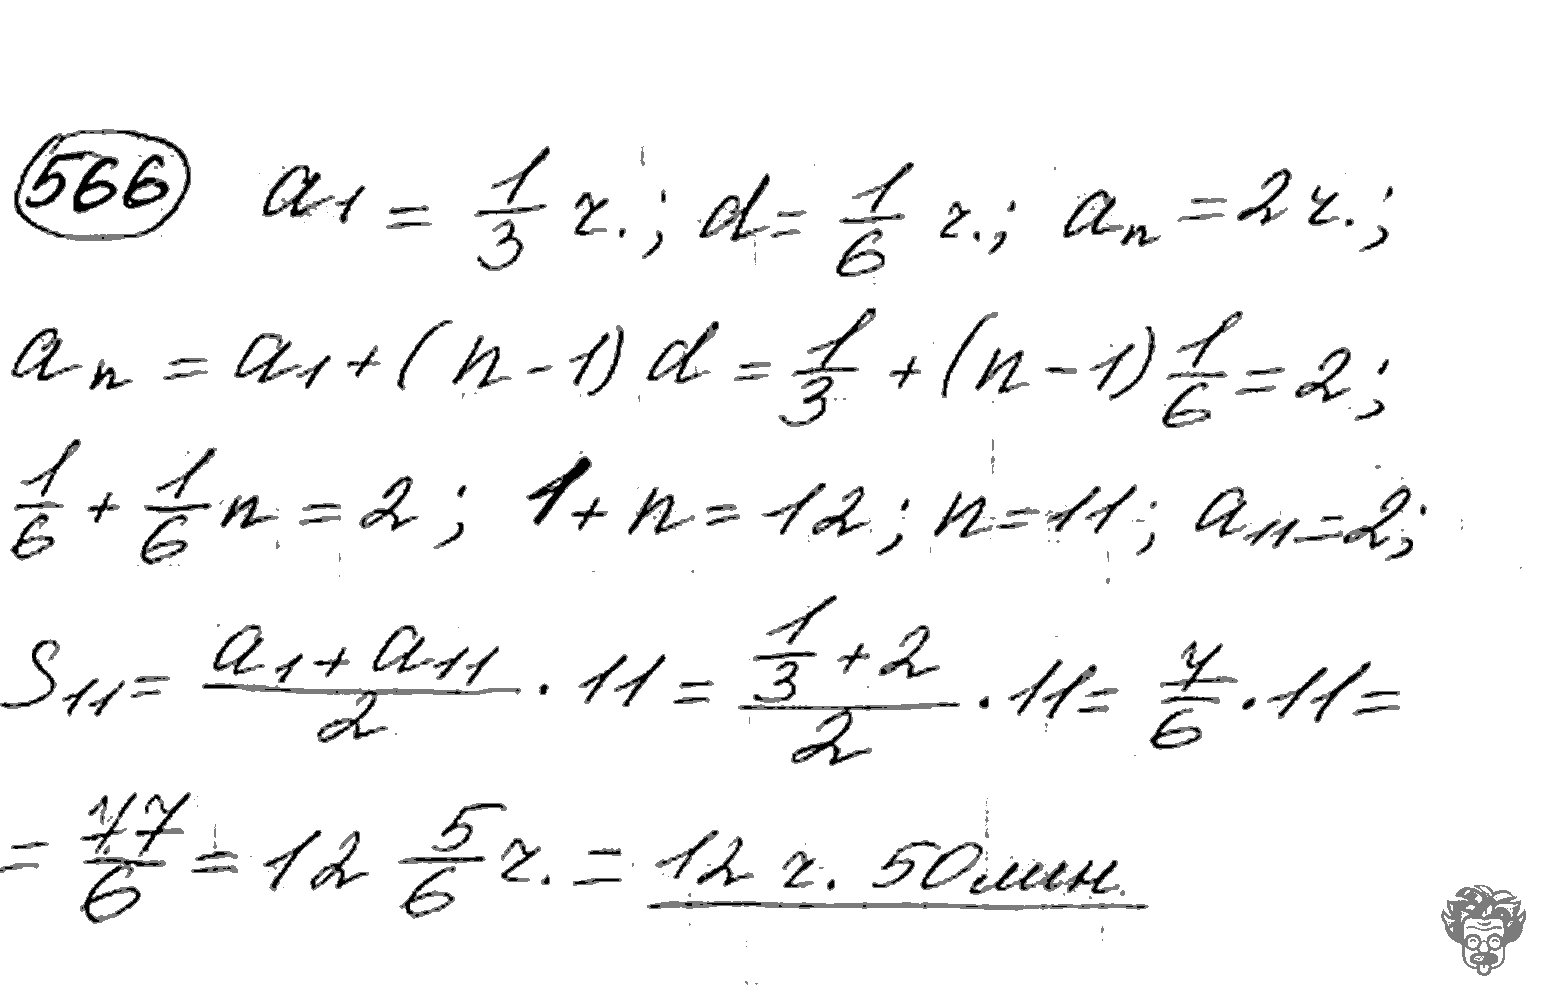 566 a₁ = 1/3 ч.; d = 1/6 ч.; aₙ = 2 ч.;
aₙ = a₁ + (n - 1) d = 1/3 + (n - 1) 1/6 = 2;
1/6 + 1/6 n = 2; 1 + n = 12; n = 11; a₁₁ = 2;
S₁₁ = (a₁ + a₁₁)/2 · 11 = (1/3 + 2)/2 · 11 = 7/6 · 11 =
= 77/6 = 12 5/6 ч. = 12 ч. 50 мин.